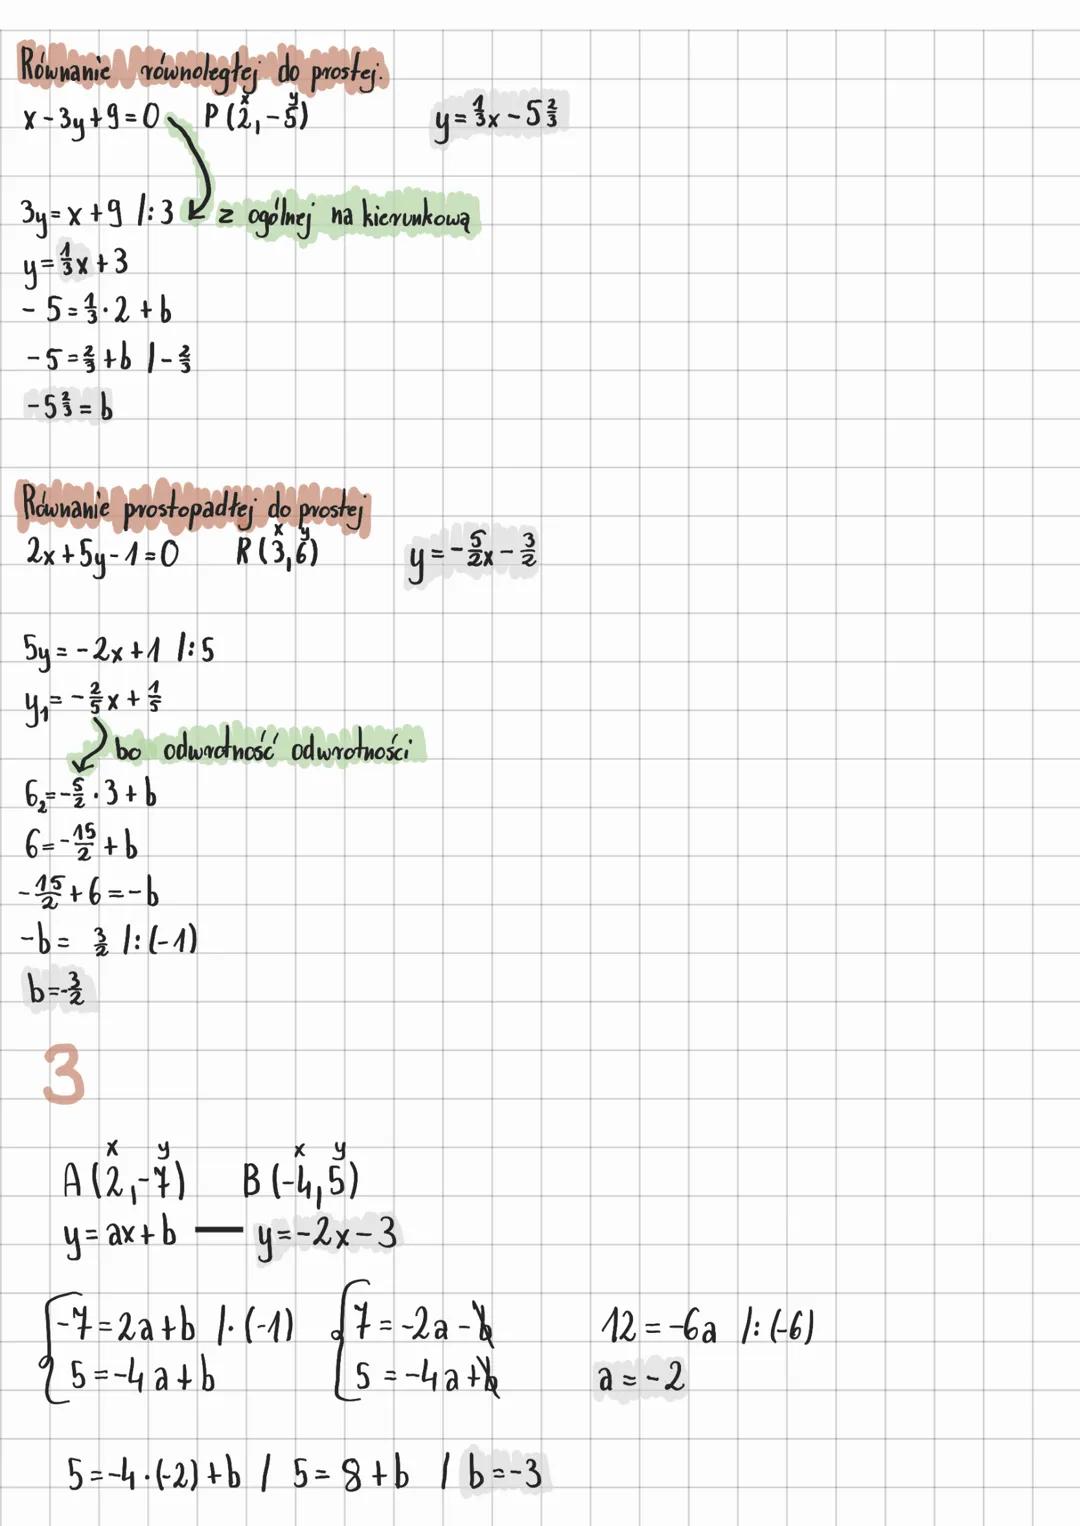 Równanie równoległej do prostej.
x - 3y + 9 = 0 P (2, -5) y = 1/3x - 5 2/3
x y
3y = x + 9 /: 3 z ogólnej na kierunkową
y = 1/3x + 3
- 5 = 1/3 · 2 + b
- 5 = 2/3 + b / - 2/3
- 5 2/3 = b
Równanie prostopadłej do prostej
x y
2x + 5y - 1 = 0 R (3, 6) y = - 5/2x - 3/2
5y = - 2x + 1 /: 5
y₁ = - 2/5x + 1/5
bo odwrotność odwrotności
6₂ = - 5/2 · 3 + b
6 = - 15/2 + b
- 15/2 + 6 = - b
- b = 3/2 /: (-1)
b = - 3/2
3
x y x y
A (2, -7) B (-4, 5)
y = ax + b — y = -2x - 3
-7 = 2a + b /· (-1) 7 = -2a - b 12 = -6a /: (-6)
5 = -4a + b 5 = -4a + b a = -2
5 = -4 · (-2) + b / 5 = 8 + b / b = -3